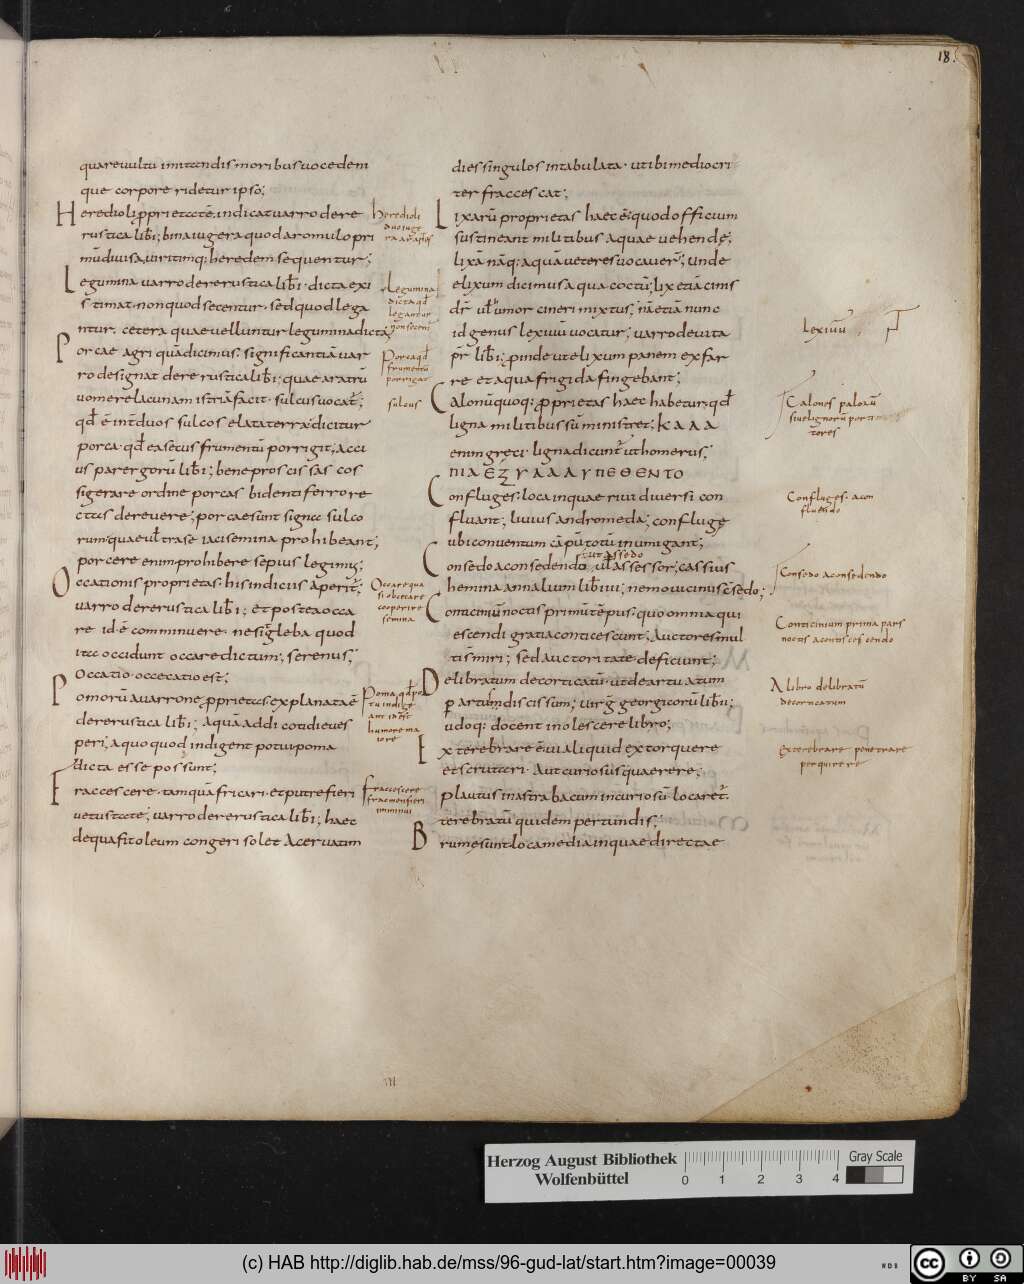 18.
quare vultu imitandis moribus vocedem
que corpore ridetur ipsō;
Heredioli ꝓprietatē indicat varro dere
rustica lib̄ i; bina iugera quod a romulo pri
mū divisa, viritimq; heredem sequentur;
Legumina varro dere rustica lib̄ i· dicta exi
stimat· non quod secentur· sed quod lega
ntur. cetera quae velluntur legumina dicta;
Porcae agri quā dicimus· significantiā var
ro designat dere rustica lib̄ i; quae aratrū
vomere lacunam istriā facit· sulcus vocat̄;
qd̄ ē int̄ duos sulcos elata terra· dicitur
porca· qd̄ ea secus frumentū porrigit, acci
us parergorū lib̄ i; bene proscissas cos
sigerare ordine porcas bidenti ferro re
ctas derevere; porcae sunt signa sulco
rum· quae ul̄ trase iaci semina prohibeant;
porcere enim prohibere sepius legimus;
Occationis proprietas· his indiciis aperit̄;
varro dere rustica lib̄ i; et postea occa
re id ē comminuere· ne sit gleba quod
ita occidunt occare dictum; serenus;
occatio· occecatio est;
Pomorū a varrone ꝓprietas explanata ē
dere rustica lib̄ i; aquā addi cotidie ves
peri; a quo quod indigent potui poma
dicta esse possunt;
Fraccescere· tamquā fricari· et putrefieri
vetustate; varro dere rustica lib̄ i; haec
dequa fit oleum congeri solet acervatim
heredioli
duo iuge
Legumina
dicta qd̄
legantur
non secent̄
Porca qd̄
frumentū
porrigat
sulcus
Occare qua
si obcecare
cooperire
semina
Poma, qd̄ po
tu indige
ant id est
humore ma
iore
fraccescere
fracmenfieri
imminui
dies singulos in tabulata· uti bi mediocri
ter fraccescat;
Lixarū proprietas haec ē; quod officium
sustineant militibus aquae vehendę;
lixā nāq; aquā veteres vocaver̄; unde
elixum dicimus aqua coctū; lix etiā cinis
dr̄ vl̄ umor cineri mixtus; nā etiā nunc
id genus lexivū vocatur; varro de vita
pr̄ lib̄ i; ꝓinde ut elixum panem ex far
re et aqua frigida fingebant;
Calonū quoq; ꝓprietas haec habetur; qd̄
ligna militibus sū ministret; ΚΑΛΑ
enim greci· ligna dicunt ut homerus;
ΠΙΛΕΞΥΛΑΛΛΥΠΕΘΕΝΤΟ
Confluges· loca in quae rivi diversi con
fluant; livius andromeda; confluge
ubi conventum cāpū totū inumigant;
Consedo a consedendo, vl̄ assessor; cassius
hemina annalium lib̄ iiii; nemo vicinus c̄sedo;
Conticiniū noctis primū tēpus· quo omnia qui
escendi gratia conticescunt; auctores mul
tis miri; sed auctoritate deficiunt;
Delibratum decorticatū· ut deartuatum
ꝑ artus discissum; virg̅ georgicorū lib̄ ii;
udoq; docent inolescere libro;
Exterebrare ē vi aliquid extorquere
et scrutari· aut curiosus quaerere;
plautus in astraba cum incuriosū locaret̄·
terebratū quidem pertundis;
Brume sunt loca media in quae directae
Lexivū
Calones paloaū
sive lignorū porti
tores
Confluges· a con
fluendo
Consedo a consedendo
Conticinium prima pars
noctis a conticescendo
A libro delibratū
decorticatum
exterebrare penetrare
perquirere
VII
Herzog August Bibliothek
Wolfenbüttel
0 1 2 3 4
Gray Scale
(c) HAB http://diglib.hab.de/mss/96-gud-lat/start.htm?image=00039
WDB
cc BY SA